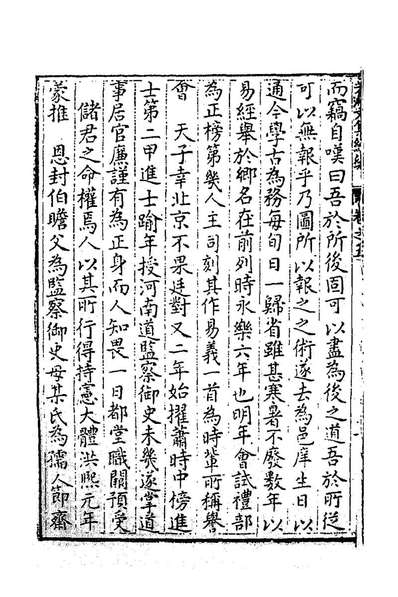 而竊自嘆曰吾於所後固可以盡為後之道吾於所從
可以無報乎乃圖所以報之之術遂去為邑庠生日以
通今學古為務每旬日一歸省雖甚寒暑不廢數年以
易經舉於鄉名在前列時永樂六年也明年會試禮部
為正榜第幾人主司刻其作易義一首為時輩所稱譽
會　天子幸北京不果廷對又二年始擢蕭時中傍進
士第二甲進士踰年授河南道監察御史未幾遂掌道
事居官廉謹有為正身而人知畏一日都堂職闕預受
儲君之命權焉人以其所行得持憲大體洪熙元年
蒙推　恩封伯瞻父為監察御史母某氏為孺人節齋